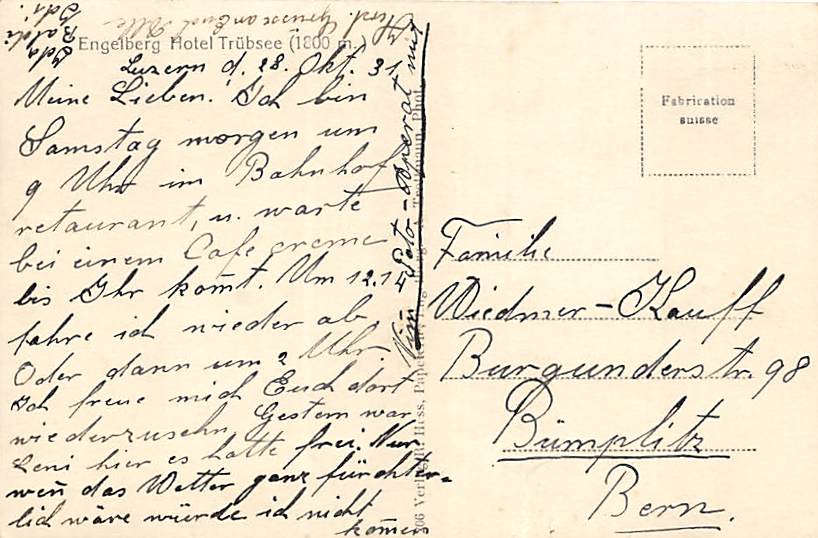 Engelberg Hotel Trübsee (1800 m.)
Luzern d. 28. Okt. 31
Meine Lieben! Ich bin
Samstag morgen um
9 Uhr im Bahnhof
retaurant, u. warte
bei einem Cafe creme
bis Ihr kom̄t. Um 12.14
fahre ich wieder ab
Oder dann um 2 Uhr.
Ich freue mich Euch dort
wiederzusehn. Gestern war
Leni hier es hatte frei. Nur
wen̄ das Wetter ganz fürchter-
lich wäre würde ich nicht
kom̄en
Nim̄ Foto-Aparat mit
Herzl. Grüsse an Euch Alle
Ida
906 Verlag R. Hess, Papeterie, Engelberg
Phot.
Fabrication
suisse
Familie
Wiedmer-Kauff
Burgunderstr. 98
Bümplitz
Bern.